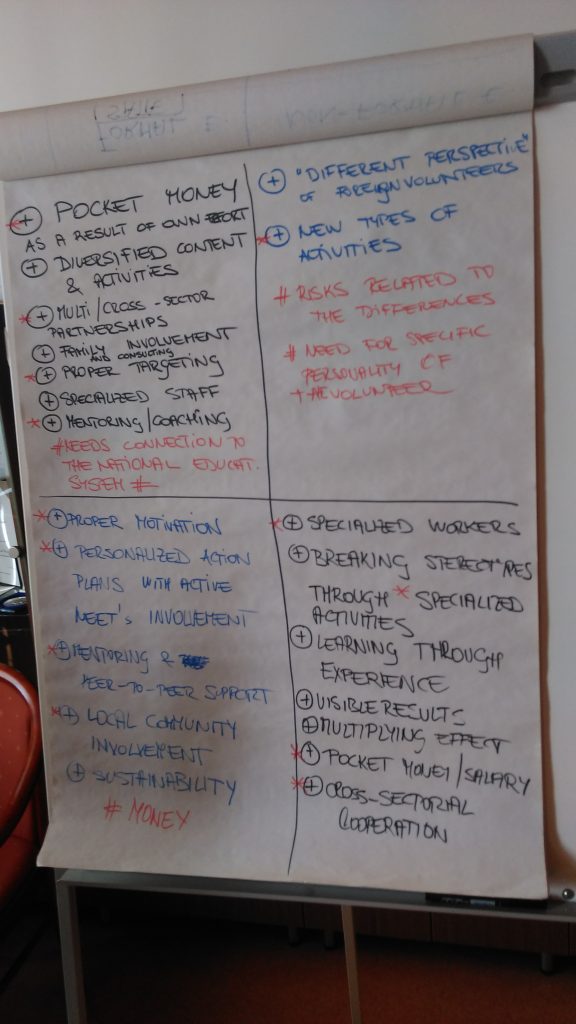 ⊕ POCKET MONEY
AS A RESULT OF OWN EFFORT
⊕ DIVERSIFIED CONTENT
& ACTIVITIES
*⊕ MULTI/CROSS-SECTOR
PARTNERSHIPS
⊕ FAMILY INVOLVEMENT
AND CONSULTING
*⊕ PROPER TARGETING
⊕ SPECIALIZED STAFF
*⊕ MENTORING/COACHING
# NEEDS CONNECTION TO
THE NATIONAL EDUCAT.
SYSTEM #
⊕ "DIFFERENT PERSPECTIVE"
OF FOREIGN VOLUNTEERS
*⊕ NEW TYPES OF
ACTIVITIES
# RISKS RELATED TO
THE DIFFERENCES
# NEED FOR SPECIFIC
PERSONALITY OF
THE VOLUNTEER
*⊕ PROPER MOTIVATION
*⊕ PERSONALIZED ACTION
PLANS WITH ACTIVE
NEET'S INVOLVEMENT
*⊕ MENTORING &
PEER-TO-PEER SUPPORT
*⊕ LOCAL COMMUNITY
INVOLVEMENT
⊕ SUSTAINABILITY
# MONEY
*⊕ SPECIALIZED WORKERS
⊕ BREAKING STEREOTYPES
THROUGH * SPECIALIZED
ACTIVITIES
⊕ LEARNING THROUGH
EXPERIENCE
⊕ VISIBLE RESULTS
⊕ MULTIPLYING EFFECT
*⊕ POCKET MONEY/SALARY
*⊕ CROSS-SECTORIAL
COOPERATION